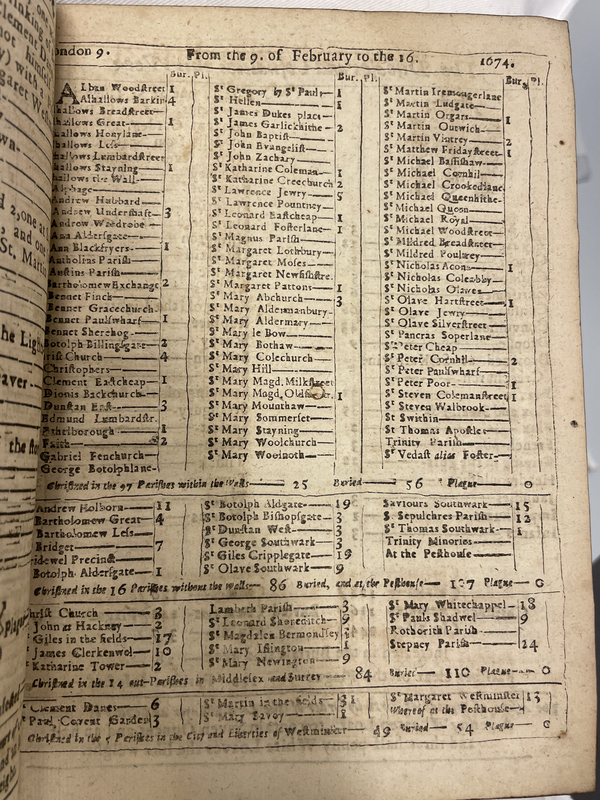 ondon 9. From the 9. of February to the 16. 1674.
Bur. Pl.
A Lban Woodstreet 1
Alhallows Barkin 4
hallows Breadstreet
hallows Great 1
hallows Honylane
hallows Less
hallows Lumbardstreet
hallows Stayning 1
hallows the Wall
Alphage
Andrew Hubbard
Andrew Undershaft 3
Andrew Wardrobe
Ann Aldersgate
Ann Blackfryers 1
Antholins Parish
Austins Parish
Bartholomew Exchange 2
Bennet Finch
Bennet Gracechurch
Bennet Paulswharf 1
Bennet Sherehog
Botolph Billingsgate 2
Christ Church 4
Christophers
Clement Eastcheap 1
Dionis Backchurch
Dunstan East 3
Edmund Lumbardstr.
Ethelborough 1
Faith 2
Gabriel Fenchurch
George Botolphlane
Bur. Pl.
St Gregory by St Pauls 1
St Hellen 1
St James Dukes place
St James Garlickhithe 2
St John Baptist
St John Evangelist
St John Zachary
St Katharine Coleman 1
St Katharine Creechurch 2
St Lawrence Jewry 5
St Lawrence Pountney
St Leonard Eastcheap 1
St Leonard Fosterlane 1
St Magnus Parish
St Margaret Lothbury
St Margaret Moses
St Margaret Newfishstre.
St Margaret Pattons 1
St Mary Abchurch 3
St Mary Aldermanbury
St Mary Aldermary
St Mary le Bow
St Mary Bothaw
St Mary Colechurch
St Mary Hill
St Mary Magd. Milkstreet
St Mary Magd. Oldfishstr. 1
St Mary Mounthaw
St Mary Sommerset
St Mary Stayning
St Mary Woolchurch
St Mary Woolnoth
Bur. Pl.
St Martin Iremongerlane
St Martin Ludgate
St Martin Orgars 1
St Martin Outwich
St Martin Vintrey 2
St Matthew Fridaystreet 1
St Michael Bassishaw
St Michael Cornhil
St Michael Crookedlane
St Michael Queenhithe
St Michael Queon
St Michael Royal
St Michael Woodstreet
St Mildred Breadstreet
St Mildred Poultrey
St Nicholas Acons 1
St Nicholas Coleabby
St Nicholas Olaves
St Olave Hartstreet 1
St Olave Jewry
St Olave Silverstreet
St Pancras Soperlane
St Peter Cheap
St Peter Cornhil 2
St Peter Paulswharf
St Peter Poor 1
St Steven Colemanstreet 1
St Steven Walbrook
St Swithin
St Thomas Apostle
Trinity Parish
St Vedast alias Foster
Christned in the 97 Parishes within the Walls 25 Buried 56 Plague 0
Andrew Holborn 11
Bartholomew Great 4
Bartholomew Less
Bridget 7
ridewel Precinct
Botolph Aldersgate 1
St Botolph Aldgate 19
St Botolph Bishopsgate 3
St Dunstan West 3
St George Southwark 3
St Giles Cripplegate 19
St Olave Southwark 9
Saviours Southwark 15
St Sepulchres Parish 12
St Thomas Southwark 1
Trinity Minories
At the Pesthouse
Christned in the 16 Parishes without the Walls 86 Buried, and at the Pesthouse 107 Plague 0
hrist Church 3
John at Hackney 2
Giles in the fields 17
James Clerkenwel 10
Katharine Tower 2
Lambeth Parish 3
St Leonard Shoreditch 9
St Magdalen Bermondsey
St Mary Islington 1
St Mary Newington 9
St Mary Whitechappel 18
St Pauls Shadwel 9
Rothorith Parish
Stepney Parish 24
Christned in the 14 out-Parishes in Middlesex and Surrey 84 Buried 110 Plague 0
Clement Danes 6
Paul Covent Garden 3
St Martin in the fields 31
St Mary Savoy 1
St Margaret Westminster 13
Whereof at the Pesthouse
Christned in the 5 Parishes in the City and Liberties of Westminster 49 Buried 54 Plague 0